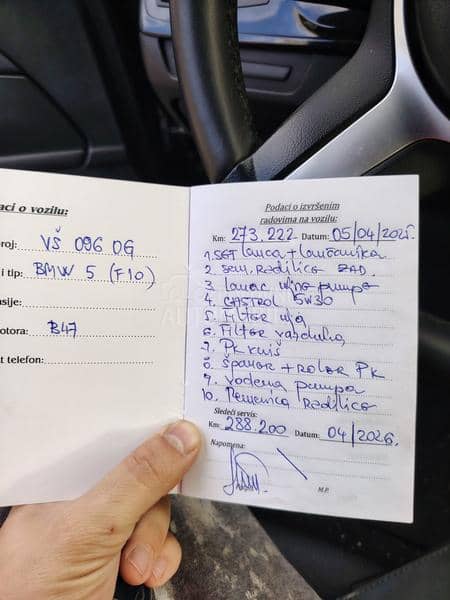 aci o vozilu:
roj: VŠ 096 OG
i tip: BMW 5 (F10)
sije:
otora: B47
t telefon:
Podaci o izvršenim
radovima na vozilu:
Km: 273.222 Datum: 05/04/2025.
1. SET lanca + lančanika
2. sem. Radilice ZAD.
3 lanac uljne pumpe
4. CASTROL 5W30
5. Filter ulja
6. Filter vazduha
7. PK kaiš
8. španer + roler PK
9. vodena pumpa
10. Remenica Radilice
Sledeći servis:
Km: 288.200 Datum: 04/2026.
Napomena:
M.P.